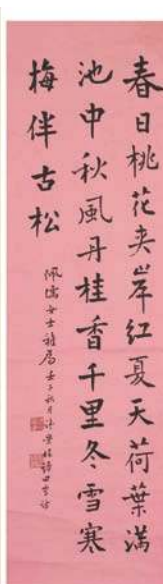 春日桃花夹岸红夏天荷葉满
池中秋風丹桂香千里冬雪寒
梅伴古松
佩儒女士雅属 壬子秋月